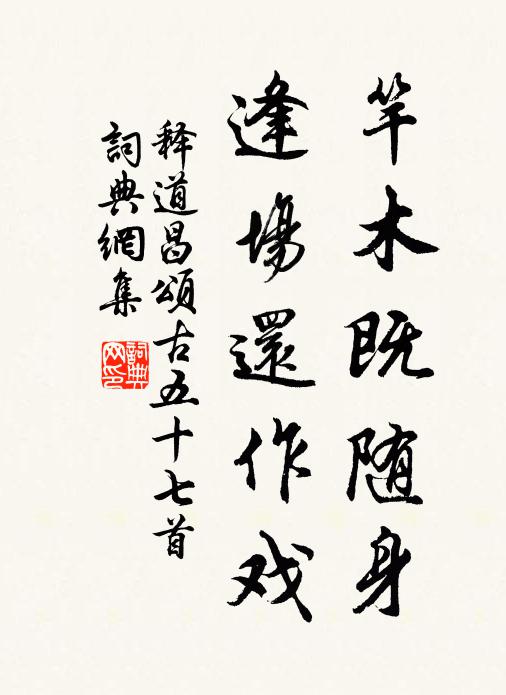 竿木既随身
逢場還作戏
释道昌頌古五十七首
詞典網集
詞典
网印